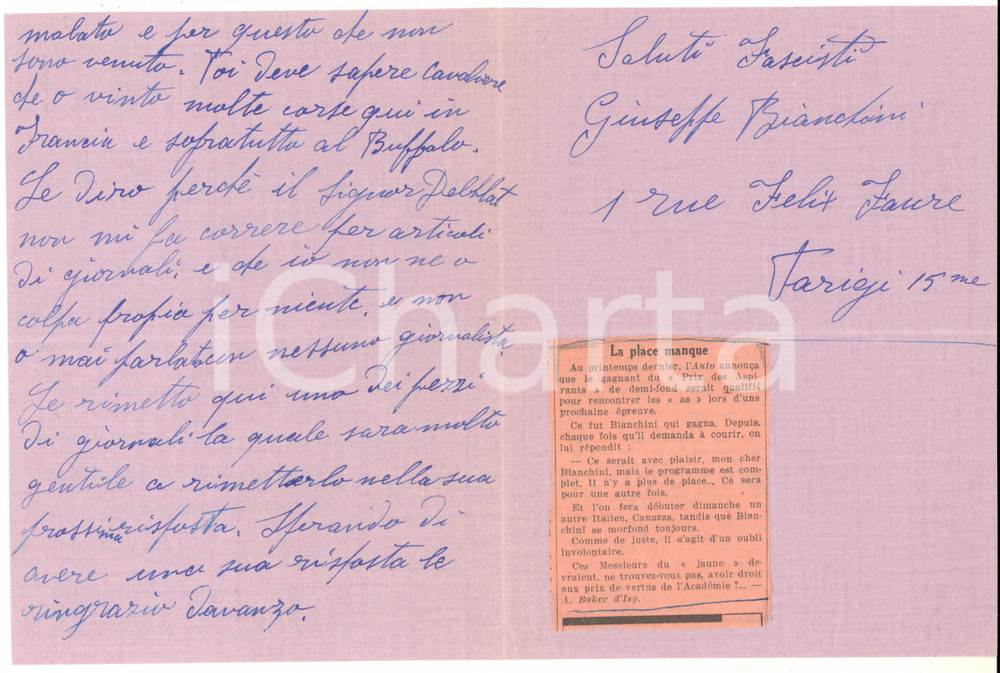 malato e per questo che non
sono venuto. Poi deve sapere Cavaliere
che o vinto molte corse qui in
Francia e sopratutto al Buffalo.
Le diro perché il Signor
non mi fa correre per articoli
di giornali. e che io non ne o
colpa propia per niente. e non
o mai parlato con nessuno giornalista.
Le rimetto qui uno dei pezzi
di giornali la quale sara molto
gentile a rimetterlo nella sua
prossima risposta. Sperando di
avere una sua risposta le
ringrazio davanzo.
Saluti Fascisti
Giuseppe Bianchini
1 rue Felix Faure
Parigi 15me
La place manque
Au printemps dernier, l'Auto annonça
que le gagnant du « Prix des Aspi-
rants » de demi-fond serait qualifié
pour rencontrer les « as » lors d'une
prochaine épreuve.
Ce fut Bianchini qui gagna. Depuis,
chaque fois qu'il demanda à courir, on
lui répondit :
— Ce serait avec plaisir, mon cher
Bianchini, mais le programme est com-
plet. Il n'y a plus de place... Ce sera
pour une autre fois.
Et l'on fera débuter dimanche un
autre Italien, Canazza, tandis que Bian-
chini se morfond toujours.
Comme de juste, il s'agit d'un oubli
involontaire.
Ces Messieurs du « jaune » de-
vraient, ne trouvez-vous pas, avoir droit
aux prix de vertus de l'Académie ?... —
A. Baker d'Isy.
iCharta